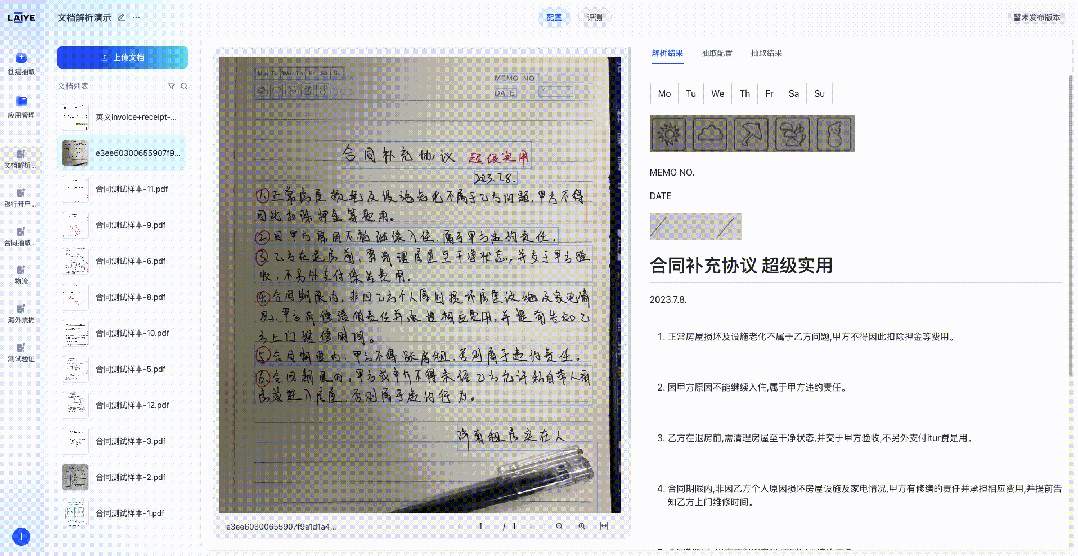 LAIYE
文档解析演示
配置
评测
暂未发布版本
上传文档
文档列表
应用管理
文档解析...
合同抽取
物流
海外票据
测试验证
英文invoice+receipt-...
e3ee60300655907f9...
合同测试样本-11.pdf
合同测试样本-9.pdf
合同测试样本-6.pdf
合同测试样本-8.pdf
合同测试样本-10.pdf
合同测试样本-5.pdf
合同测试样本-12.pdf
合同测试样本-3.pdf
合同测试样本-2.pdf
合同测试样本-1.pdf
Mo Tu We Th Fr Sa Su
MEMO NO.
DATE
合同补充协议 超级实用
2023.7.8.
①正常房屋损耗及设施老化不属于乙方问题,甲方不得
因此扣除押金等费用。
②因甲方原因不能继续入住,属于甲方违约责任。
③乙方在退房前,需清理房屋至干净状态,并交于甲方验
收,不另外支付保洁费用。
④合同期限内,非因乙方个人原因损坏房屋设施及家电情
况,甲方有修缮的责任并承担相应费用,并提前告知乙
方上门维修时间。
⑤合同期限内,甲方不得
否则属于违约责任。
⑥合同期限内,甲方或
不得未经乙方允许私自带人看
房或进入房屋,否则属于违约行为。
e3ee60300655907f9a1d1a4...
1 / 1
解析结果
抽取配置
抽取结果
Mo Tu We Th Fr Sa Su
MEMO NO.
DATE
合同补充协议 超级实用
2023.7.8.
1. 正常房屋损坏及设施老化不属于乙方问题,甲方不得因此扣除押金等费用。
2. 因甲方原因不能继续入住,属于甲方违约责任。
3. 乙方在退房前,需清理房屋至干净状态,并交于甲方验收,不另外支付itur费是用。
4. 合同期限内,非因乙方个人原因损坏房屋设施及家电情况,甲方有修缮的责任并承担相应费用,并提前告
知乙方上门维修时间。